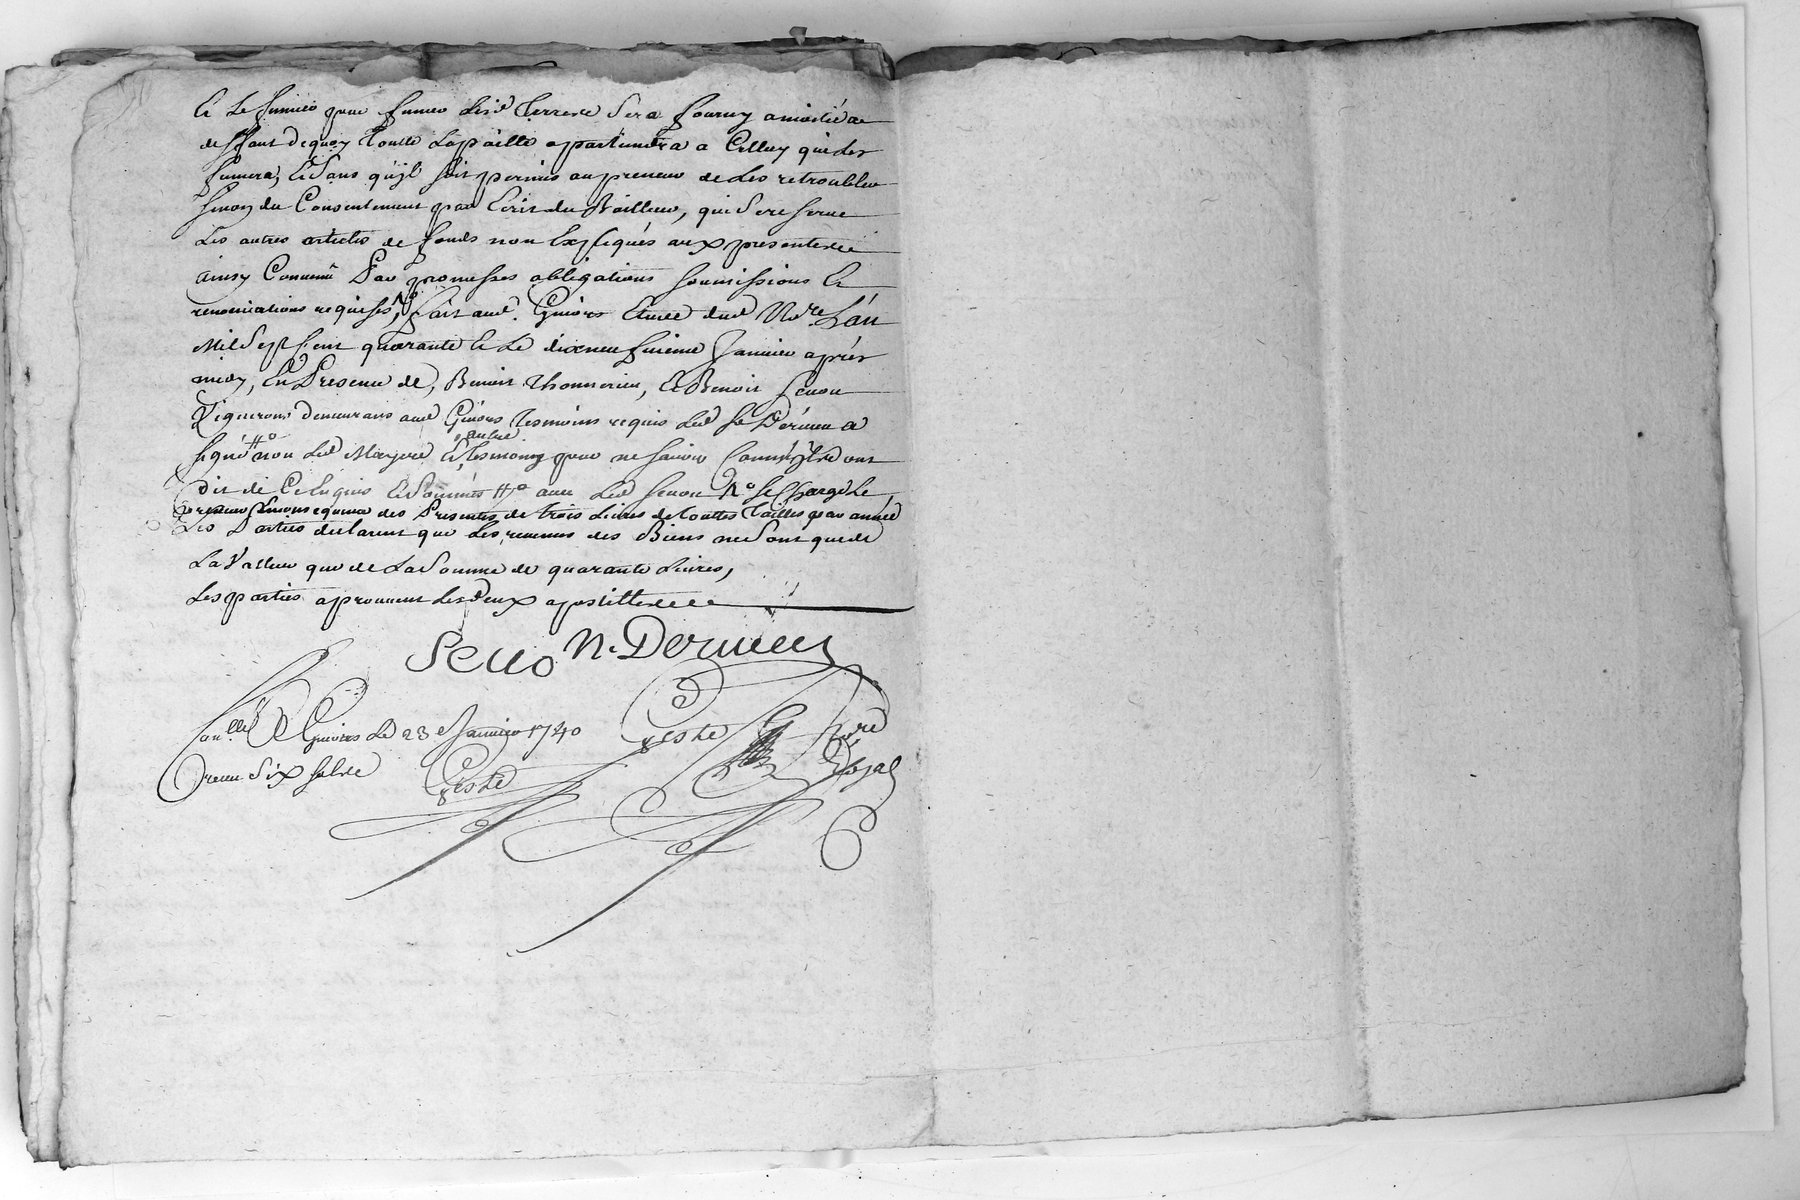 Et Le fumier pour fumer lesd. Terres Sera fourny a moitié a
deffaut dequoy Toutte Lapaille appartiendra a Celluy qui Les
fumera, Et Sans qu'jl soit permis au preneur de Les retroubler
sinon du Consentement par Ecrit du Bailleur, qui Se reserve
Les autres articles de fonds non Expliqués aux presentes
ainsy Convenu Par promesses obligations soumissions Et
renonciations requises, N.o fait aud. Givors Etude dud No.re L'an
Mil Sept Cent quarante Et Le dixneufvieme Janvier aprés
midy, En Presence de, Benoit Thonnerieu, Et Benoit Senou
Vignerons demeurans aud Givors Tesmoins requis Led Sr Dérvieu a
signé #o non Led Mayere Et L'autre Tesmoing pour ne scavoir Comme jls ont
dit de Ce Enquis Et Sommés #o avec Led Senou N.o se Charge Le
preneur En Consequence des Presentes de trois Livres de touttes Tailles par année
Les Parties declarent que Les revenus des Biens ne Sont que de
La Valleur que de La Somme de quarante Livres,
Les parties aprouvent Les deux apostilles
Seno N. Dervieu
Con.llé A Givors Le 23 e Janvier 1740
receu Six sols
Geste
Geste No.re Royal